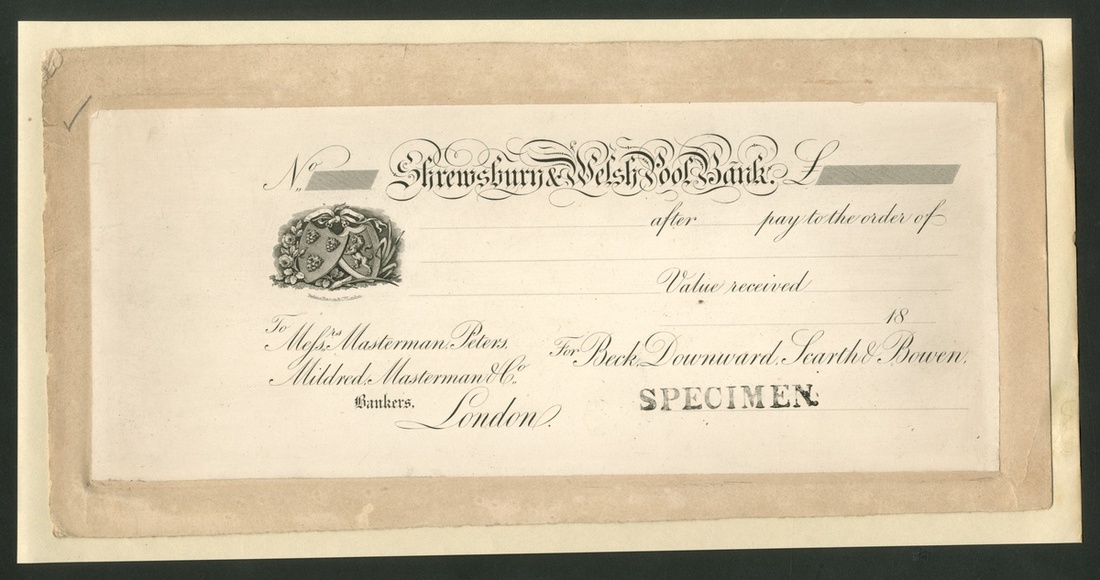 No. Shrewsbury & Welsh Pool Bank. £
after pay to the order of
Value received
18
To Messrs. Masterman, Peters,
Mildred, Masterman & Co.
Bankers,
London.
For Beck, Downward, Scarth & Bowen,
SPECIMEN.